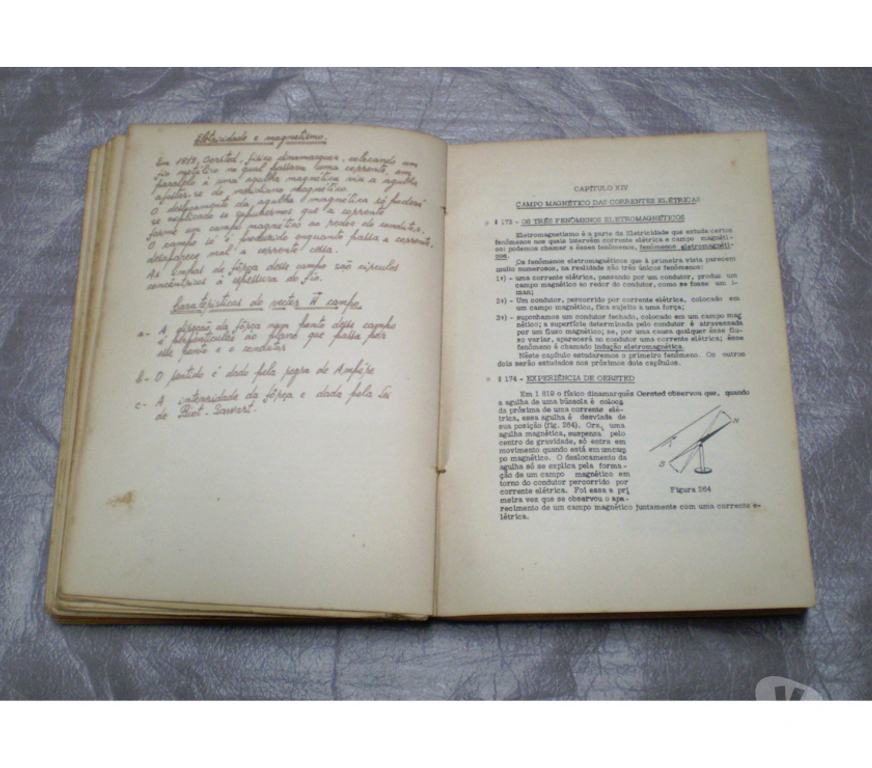 Eletricidade e magnetismo.
Em 1819, Oersted, físico dinamarquez, colocando um
fio metálico no qual passava uma corrente, em
paralelo à uma agulha magnética viu a agulha
afastar-se do meridiano magnético.
O deslocamento da agulha magnética só poderá
se explicado se supuzermos que a corrente
forme um campo magnético ao redor do condutor.
O campo só é produzido enquanto passa a corrente.
desaparece mal a corrente cessa.
As linhas de fôrça desse campo são círculos
concêntricos à do fio.
Caraterísticas do vector H campo.
a- A direção da fôrça num ponto desse campo
é perpendicular ao plano que passa por
este ponto e o condutor
b- O sentido é dado pela regra de Ampére
c- A intensidade da fôrça é dada pela Lei
de Biot-Savart.
CAPÍTULO XIV
CAMPO MAGNÉTICO DAS CORRENTES ELÉTRICAS
§ 173 - OS TRÊS FENÔMENOS ELETROMAGNÉTICOS
Eletromagnetismo é a parte da Eletricidade que estuda certos
fenômenos nos quais intervêm corrente elétrica e campo magnéti-
co: podemos chamar a êsses fenômenos, fenômenos eletromagnéti-
cos.
Os fenômenos eletromagnéticos que à primeira vista parecem
muito numerosos, na realidade são três únicos fenômenos:
1º) - uma corrente elétrica, passando por um condutor, produz um
campo magnético ao redor do condutor, como se fosse um i-
man;
2º) - Um condutor, percorrido por corrente elétrica, colocado em
um campo magnético, fica sujeito a uma fôrça;
3º) - suponhamos um condutor fechado, colocado em um campo mag
nético; a superfície determinada pelo condutor é atravessada
por um fluxo magnético; se, por uma causa qualquer êsse flu-
xo variar, aparecerá no condutor uma corrente elétrica; êsse
fenômeno é chamado indução eletromagnética.
Nêste capítulo estudaremos o primeiro fenômeno. Os outros
dois serão estudados nos próximos dois capítulos.
§ 174 - EXPERIÊNCIA DE OERSTED
Em 1 819 o físico dinamarquês Oersted observou que, quando
a agulha de uma bússola é coloca
da próxima de uma corrente elé-
trica, essa agulha é desviada de
sua posição (fig. 264). Ora, uma
agulha magnética, suspensa pelo
centro de gravidade, só entra em
movimento quando está em um cam
po magnético. O deslocamento da
agulha só se explica pela forma-
ção de um campo magnético em
torno do condutor percorrido por
corrente elétrica. Foi essa a pri
meira vez que se observou o apa-
recimento de um campo magnético juntamente com uma corrente e-
létrica.
N
S
Figura 264